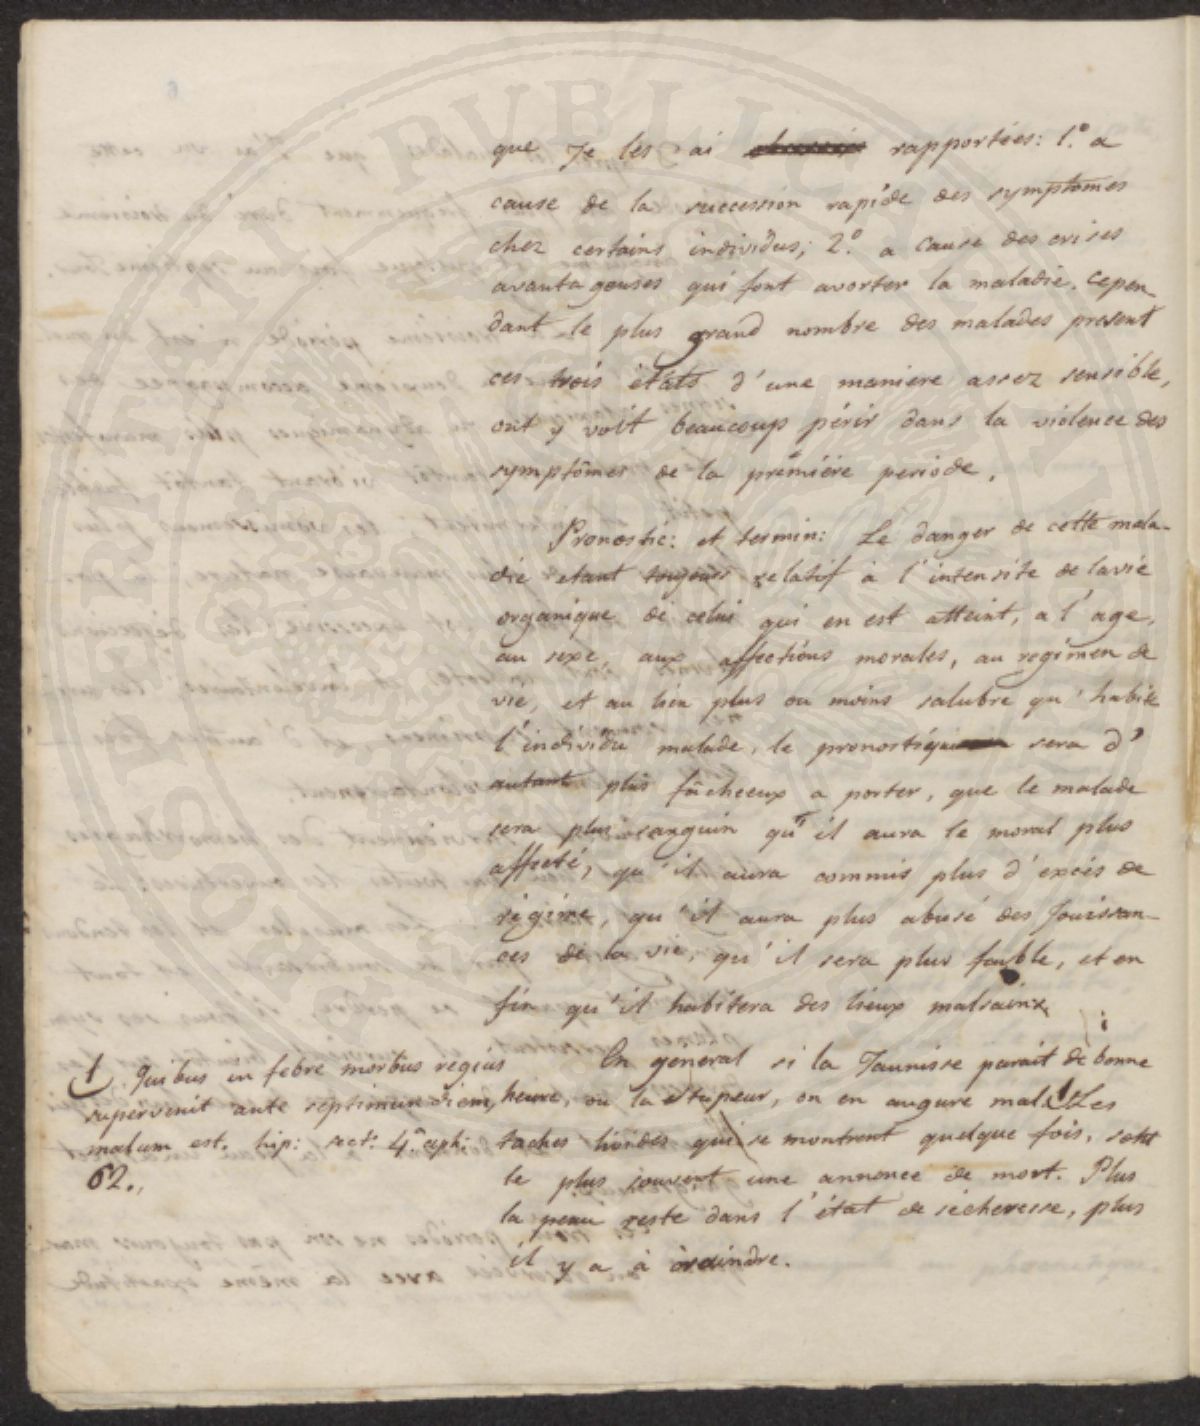 que Je les ai rapportées: 1.º a
cause de la succession rapide des symptomes
chez certains individus; 2.º a cause des crises
avantageuses qui font avorter la maladie. cepen
dant le plus grand nombre des malades present
ces trois états d'une maniere assez sensible,
ont y voit beaucoup périr dans la violence des
symptômes de la première periode.
Pronostic: et termin: Le danger de cette mala-
die etant toujours relatif à l'intensite de la vie
organique de celui qui en est atteint, a l'age,
au sexe, aux affections morales, au regimen de
vie, et au lieu plus ou moins salubre qu'habite
l'individu malade, le pronostique sera d'
autant plus fâcheeux a porter, que le malade
sera plus sanguin qu'il aura le moral plus
affecté, qu'il aura commis plus d'excés de
régime, qu'il aura plus abusé des Jouissan-
ces de la vie, qu'il sera plus faible, et en
fin qu'il habitera des lieux malsains.
En general si la Jaunisse parait de bonne
heure, ou la stupeur, on en augure mal. (1 Les
taches livides qui se montrent quelque fois, sont
le plus souvent une annonce de mort. Plus
la peau reste dans l'état de sécheresse, plus
il y a à craindre.
1 Quibus in febre morbus regius
supervenit ante septimum diem,
malum est. hip: sect: 4.ª aph:
62.,